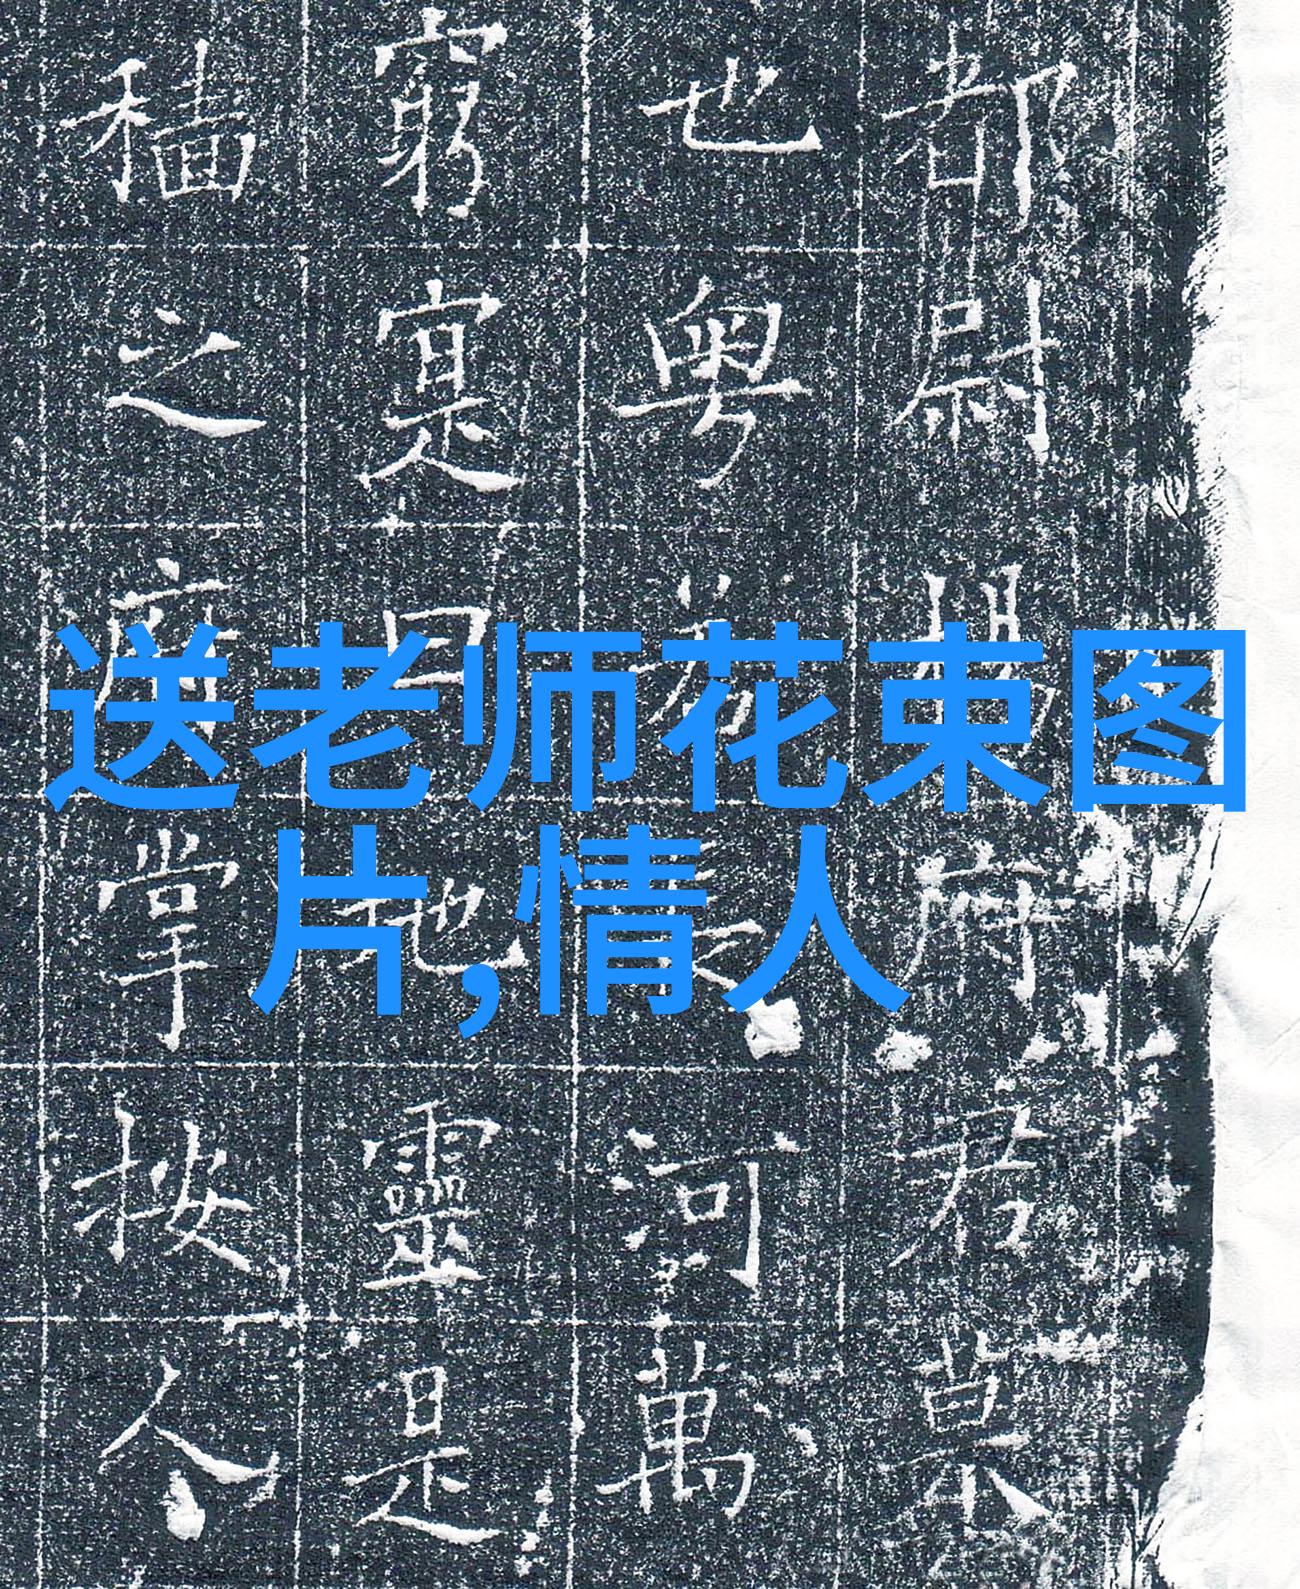 送老师花束图
片,情人
都尉府君
也粤河萬
窮寔曰地靈是
穡之掌按人